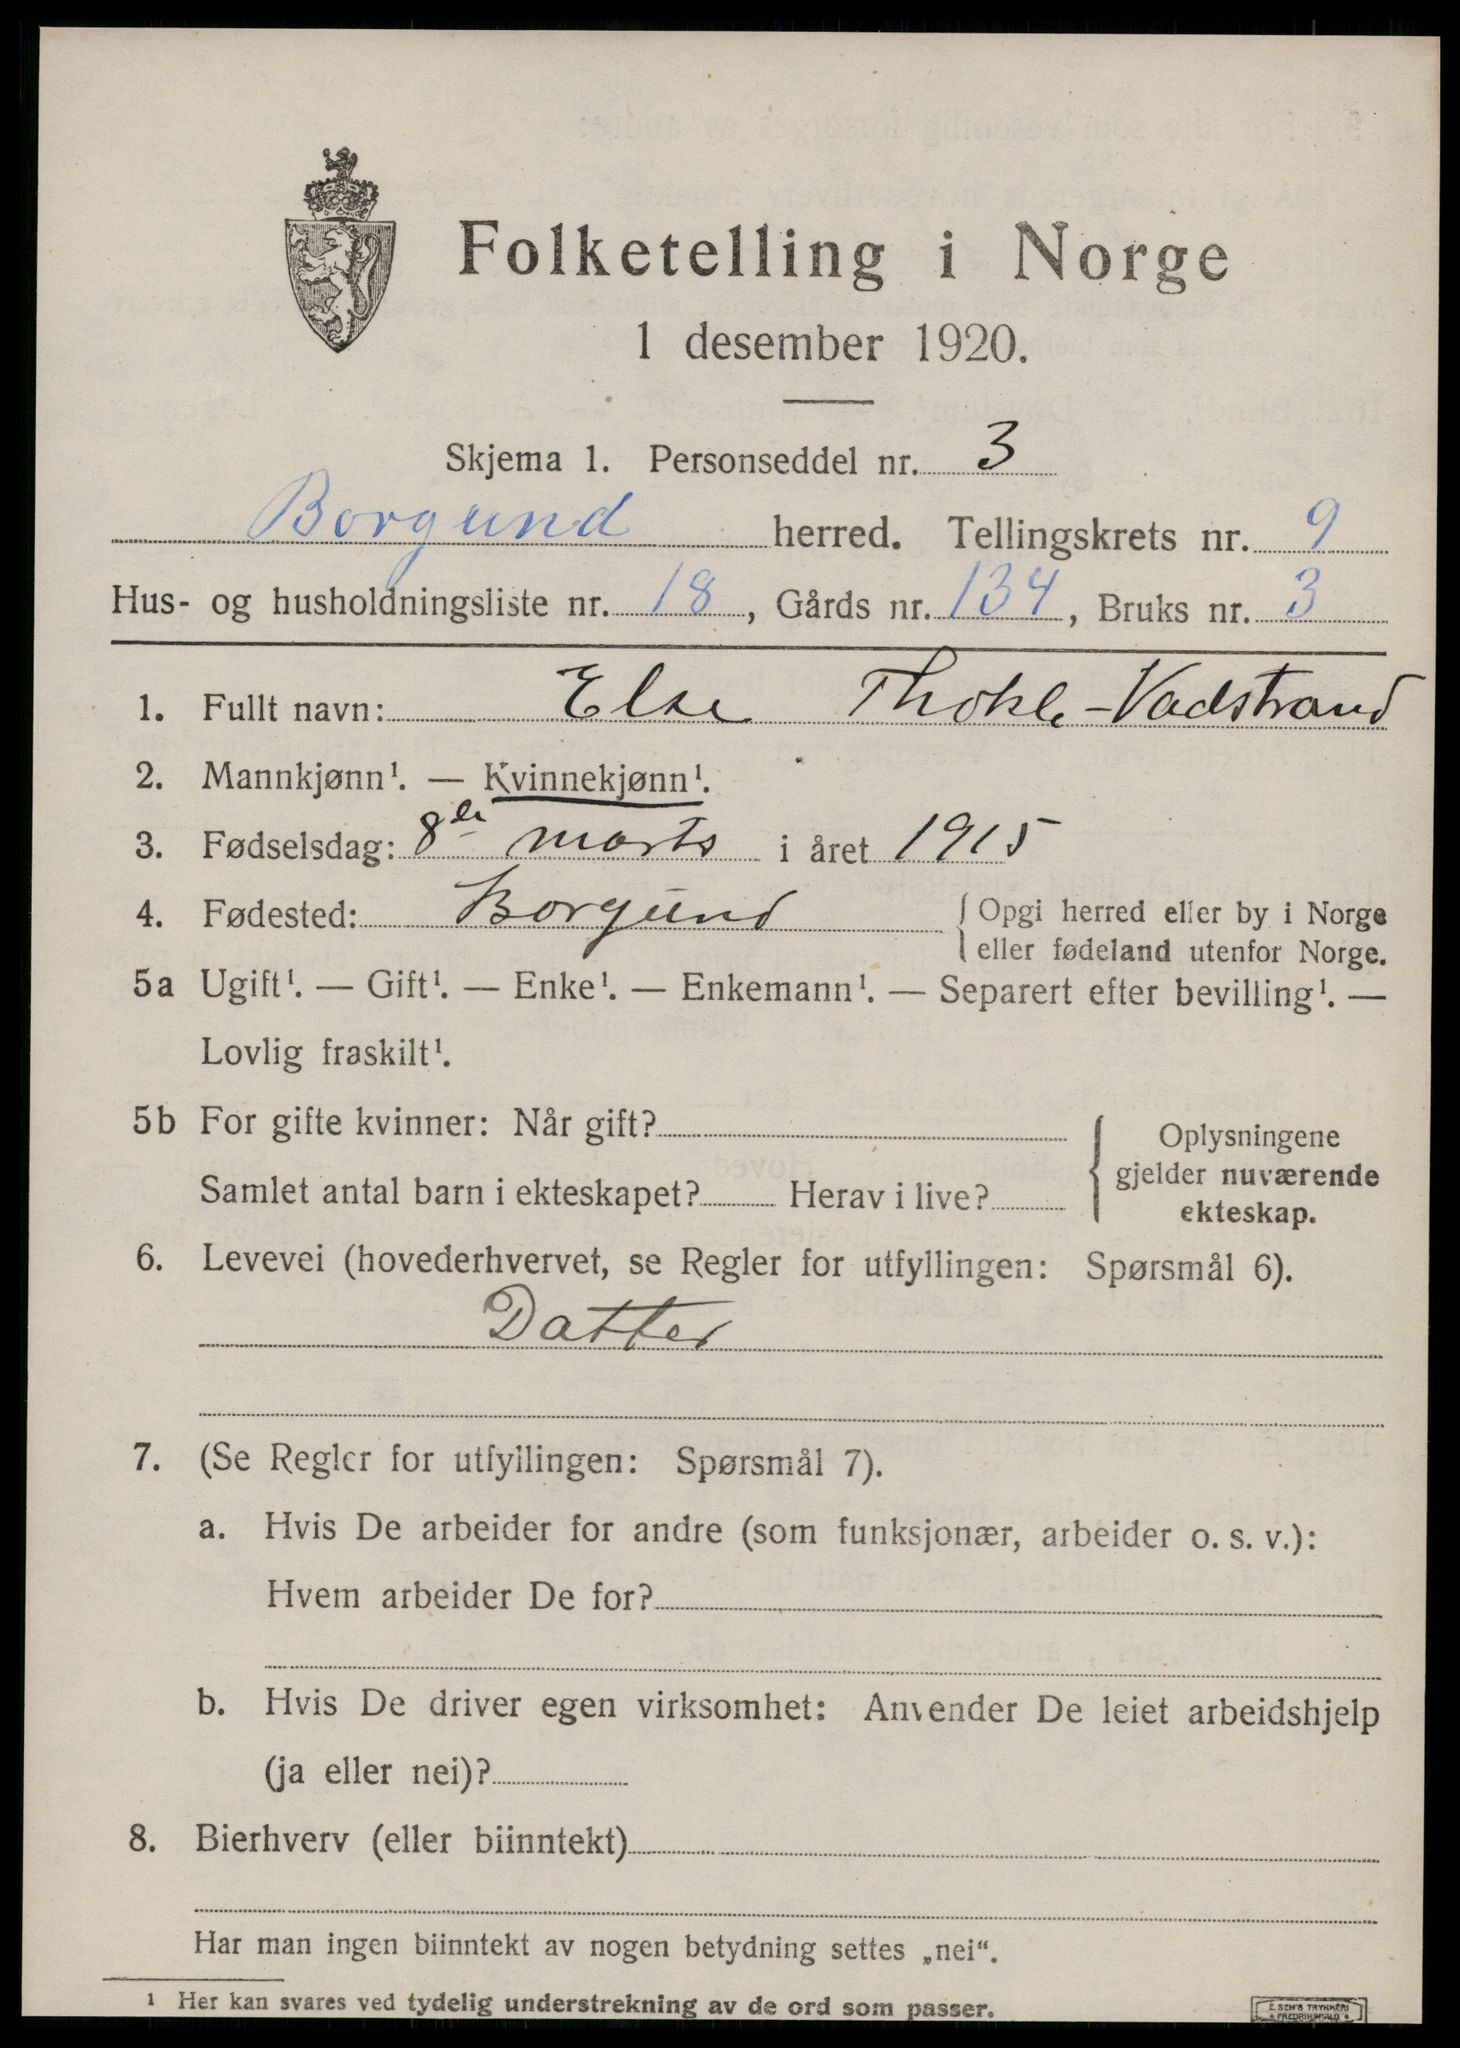 Folketelling i Norge
1 desember 1920.
Skjema 1. Personseddel nr. 3
Borgund herred. Tellingskrets nr. 9
Hus- og husholdningsliste nr. 18, Gårds nr. 134, Bruks nr. 3
1. Fullt navn: Else Thokle-Vadstrand
2. Mannkjønn¹. — Kvinnekjønn¹.
3. Fødselsdag: 8de marts i året 1915
4. Fødested: Borgund { Opgi herred eller by i Norge
eller fødeland utenfor Norge.
5a Ugift¹. — Gift¹. — Enke¹. — Enkemann¹. — Separert efter bevilling¹. —
Lovlig fraskilt¹.
5b For gifte kvinner: Når gift?
Samlet antal barn i ekteskapet? Herav i live?
{ Oplysningene
gjelder nuværende
ekteskap.
6. Levevei (hovederhvervet, se Regler for utfyllingen: Spørsmål 6).
Datter
7. (Se Regler for utfyllingen: Spørsmål 7).
a. Hvis De arbeider for andre (som funksjonær, arbeider o. s. v.):
Hvem arbeider De for?
b. Hvis De driver egen virksomhet: Anvender De leiet arbeidshjelp
(ja eller nei)?
8. Bierhverv (eller biinntekt)
Har man ingen biinntekt av nogen betydning settes „nei“.
¹ Her kan svares ved tydelig understrekning av de ord som passer.
E. SEM'S TRYKKERI
FREDRIKSHALD